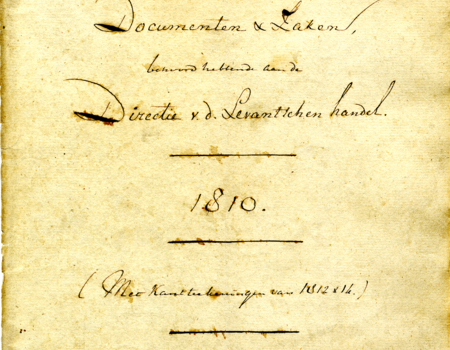 Documenten & Zaken,
behoord hebbende aan de
Directie v. d. Levantschen handel.
1810.
(Met Kantteekeningen van 1812 & 14.)